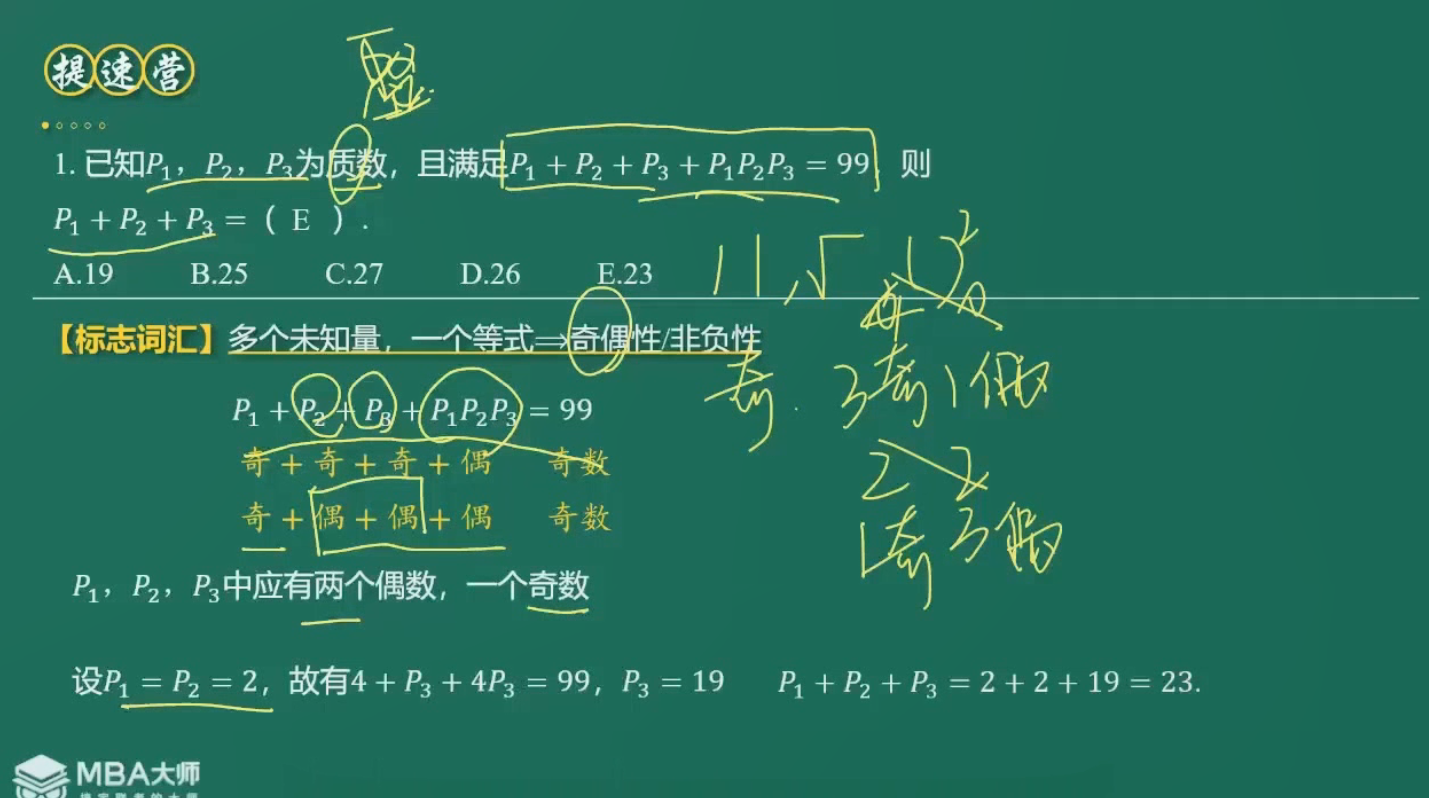 提速营
1. 已知P₁，P₂，P₃为质数，且满足P₁ + P₂ + P₃ + P₁P₂P₃ = 99，则
P₁ + P₂ + P₃ =（ E ）.
A.19 B.25 C.27 D.26 E.23
【标志词汇】多个未知量，一个等式⟹奇偶性/非负性
11,√ ( )²
奇 3奇1偶
P₁ + P₂ + P₃ + P₁P₂P₃ = 99
奇 + 奇 + 奇 + 偶 奇数
2 2
奇 + 偶 + 偶 + 偶 奇数
1奇3偶
P₁，P₂，P₃中应有两个偶数，一个奇数
设P₁ = P₂ = 2，故有4 + P₃ + 4P₃ = 99，P₃ = 19 P₁ + P₂ + P₃ = 2 + 2 + 19 = 23.
MBA大师